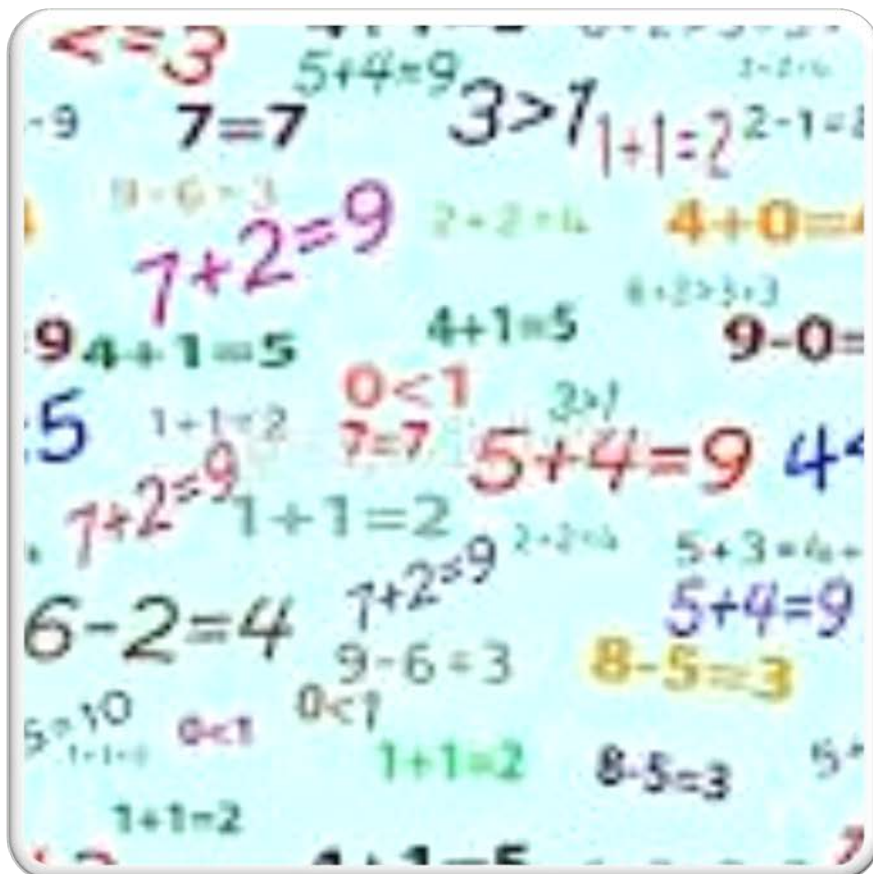 2=3
5+4=9
3>1
-9
7=7
1+1=2
2-1=
9-6=3
7+2=9
2+2=4
4+0=4
6+2>3+3
9
4+1=5
4+1=5
9-0=
0<1
3>1
5
1+1=2
7=7
5+4=9
4<
7+2=9
1+1=2
2+2=4
5+3=4+
7+2=9
5+4=9
6-2=4
9-6=3
8-5=3
5=10
0<1
0<1
1+1=2
8-5=3
5+
1+1=2
4+1=5